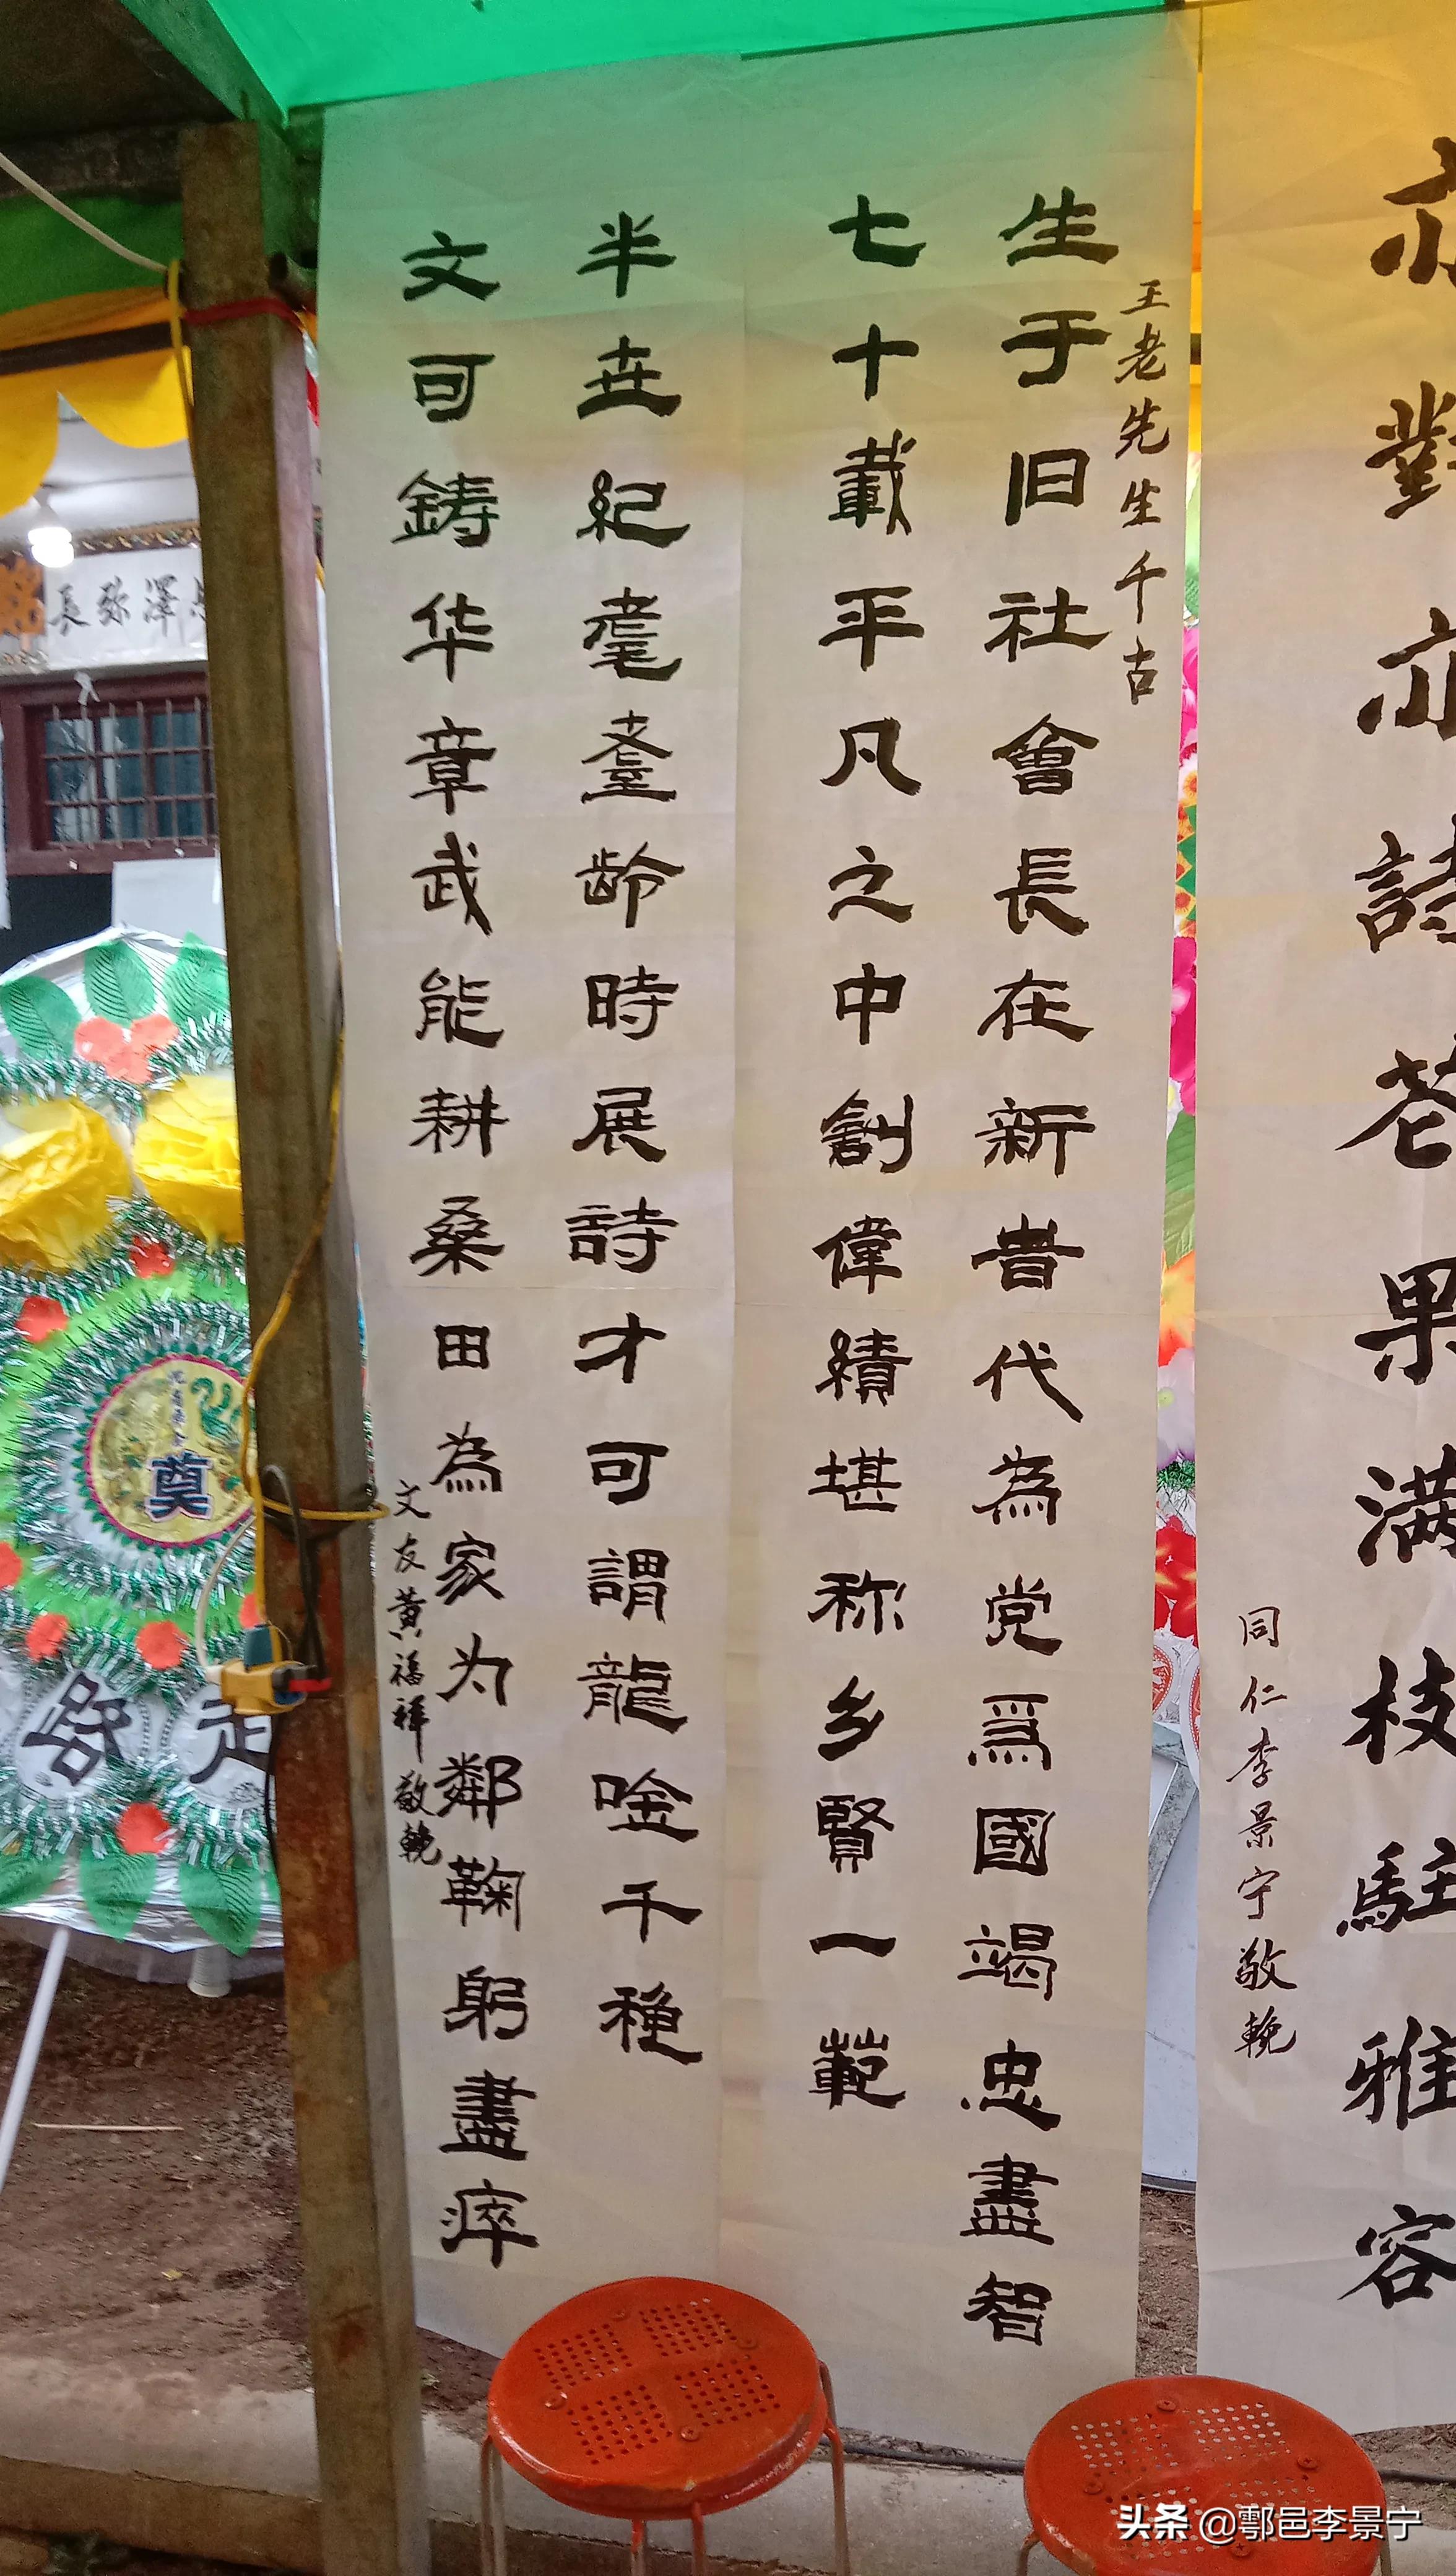 亦對亦詩果满枝駐雅容
同仁李景宁敬輓
王老先生千古
生于旧社會長在新旹代為党爲國竭忠盡智
七十載平凡之中創偉績堪称乡賢一範
半卋紀耄耋龄時展詩才可謂龍唫千穐
文可鋳华章武能耕桑田為家为鄰鞠躬盡瘁
文友黄福祥敬輓
澤弥長
奠
头条 @鄠邑李景宁